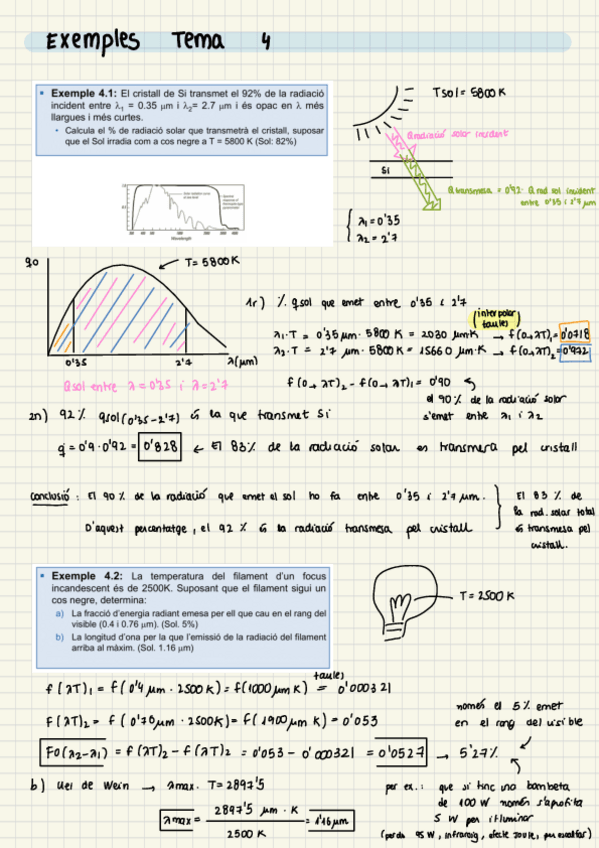 Exemples Tema 4
▪ Exemple 4.1: El cristall de Si transmet el 92% de la radiació
incident entre λ1 = 0.35 μm i λ2= 2.7 μm i és opac en λ més
llargues i més curtes.
• Calcula el % de radiació solar que transmetrà el cristall, suposar
que el Sol irradia com a cos negre a T = 5800 K (Sol: 82%)
Tsol = 5800 K
Qradiació solar incident
Si
Qtransmesa = 0'92 · Q rad sol incident
entre 0'35 i 2'7 μm
λ1 = 0'35
λ2 = 2'7
Wavelength
T = 5800 K
0'35 2'7 λ(μm)
Qsol entre λ = 0'35 i λ = 2'7
1r) % qsol que emet entre 0'35 i 2'7
(interpolar taules)
λ1·T = 0'35 μm · 5800 K = 2030 μm·K → f(0→λT)1 = 0'0718
λ2·T = 2'7 μm · 5800 K = 15660 μm·K → f(0→λT)2 = 0'972
f(0→λT)2 - f(0→λT)1 = 0'90
el 90% de la radiació solar
s'emet entre λ1 i λ2
2n) 92% qsol(0'35-2'7) és la que transmet Si
q = 0'9 · 0'92 = 0'828 ← El 83% de la radiació solar es transmetrà pel cristall
Conclusió: El 90% de la radiació que emet el sol ho fa entre 0'35 i 2'7 μm.
D'aquest percentatge, el 92% és la radiació transmesa pel cristall
El 83% de
la rad. solar total
és transmesa pel
cristall.
▪ Exemple 4.2: La temperatura del filament d'un focus
incandescent és de 2500K. Suposant que el filament sigui un
cos negre, determina:
a) La fracció d'energia radiant emesa per ell que cau en el rang del
visible (0.4 i 0.76 μm). (Sol. 5%)
b) La longitud d'ona per la que l'emissió de la radiació del filament
arriba al màxim. (Sol. 1.16 μm)
T = 2500 K
taules
f(λT)1 = f(0'4 μm · 2500 K) = f(1000 μm K) = 0'000321
F(λT)2 = f(0'76 μm · 2500K) = f(1900 μm K) = 0'053
F0(λ2-λ1) = f(λT)2 - f(λT)2 = 0'053 - 0'000321 = 0'0527 → 5'27%
només el 5% emet
en el rang del visible
b) Llei de Wein → λmax · T = 2897'5
λmax = 2897'5 μm · K / 2500 K = 1'16 μm
per ex.: que si tinc una bombeta
de 100 W només s'aprofita
5 W per il·luminar
(perdu 95 W, infraroig, efecte Joule, per escalfor)